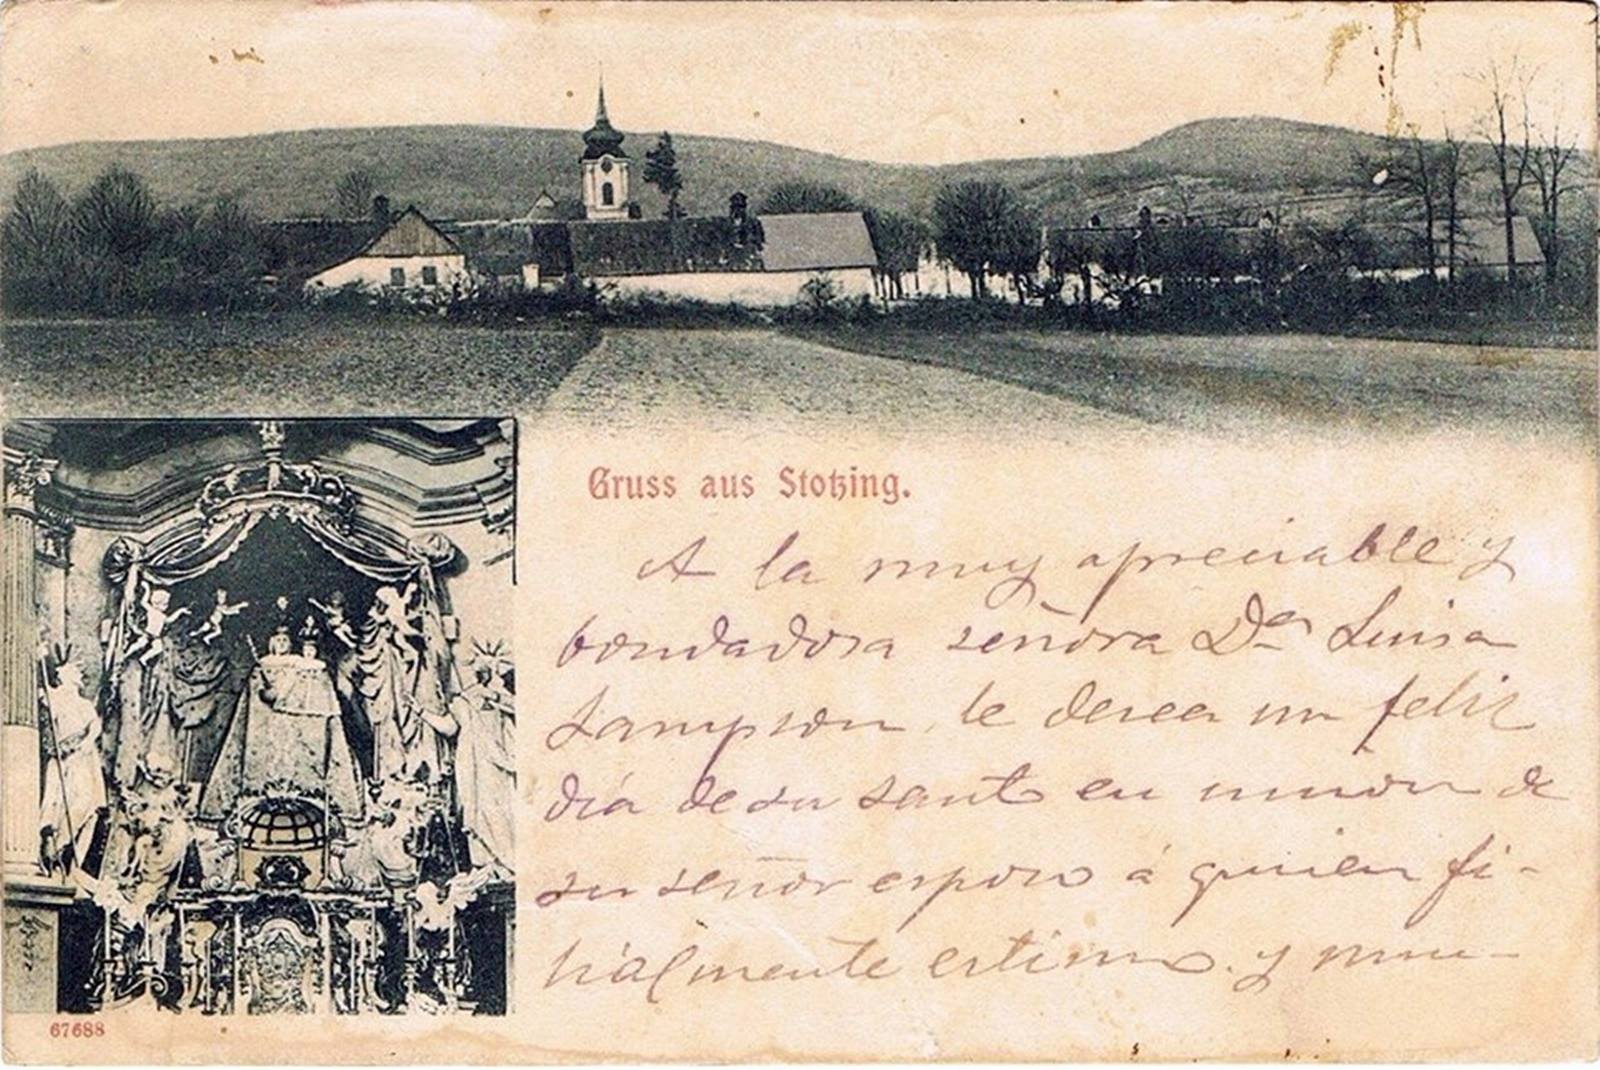 Gruss aus Stotzing.
A la muy apreciable y
bondadosa señora Dª Luisa
Sampson, le desea un feliz
día de su santo en union de
su señor esposo á quien fi-
lialmente estimo y mu-
67688